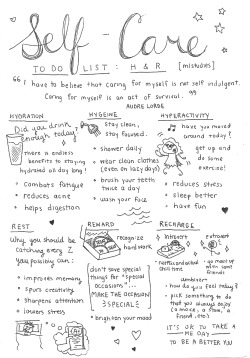 Self-Care
TO DO LIST: H & R [mistudies]
"I have to believe that caring for myself is not self indulgent.
Caring for myself is an act of survival."
AUDRE LORDE
HYDRATION
Did you drink
enough today?
There is endless
benefits to staying
hydrated all day long!
+ combats fatigue
+ reduces acne
+ helps digestion
HYGEINE
Stay clean,
stay focused.
+ shower daily
+ wear clean clothes
(even on lazy days)
+ brush your teeth
twice a day
+ wash your face
HYPERACTIVITY
have you moved
around today?
get up and
do some
exercise!
+ reduces stress
+ sleep better
+ have fun
REST
Why you should be
catching every Z
you possibly can:
+ improves memory
+ spurs creativity
+ sharpens attention
+ lowers stress
REWARD
recognize
hard work
don't save special
things for "special
occasions"...
MAKE THE OCCASION
SPECIAL
+ brighten your mood
RECHARGE
introvert
extrovert
+ go meet up
with some
friends
ambivert
+ how do you feel today?
+ pick something to do
that you always enjoy
(a movie, a show, a
friend, etc)
IT'S OK TO TAKE A
ME DAY
TO BE A BETTER YOU